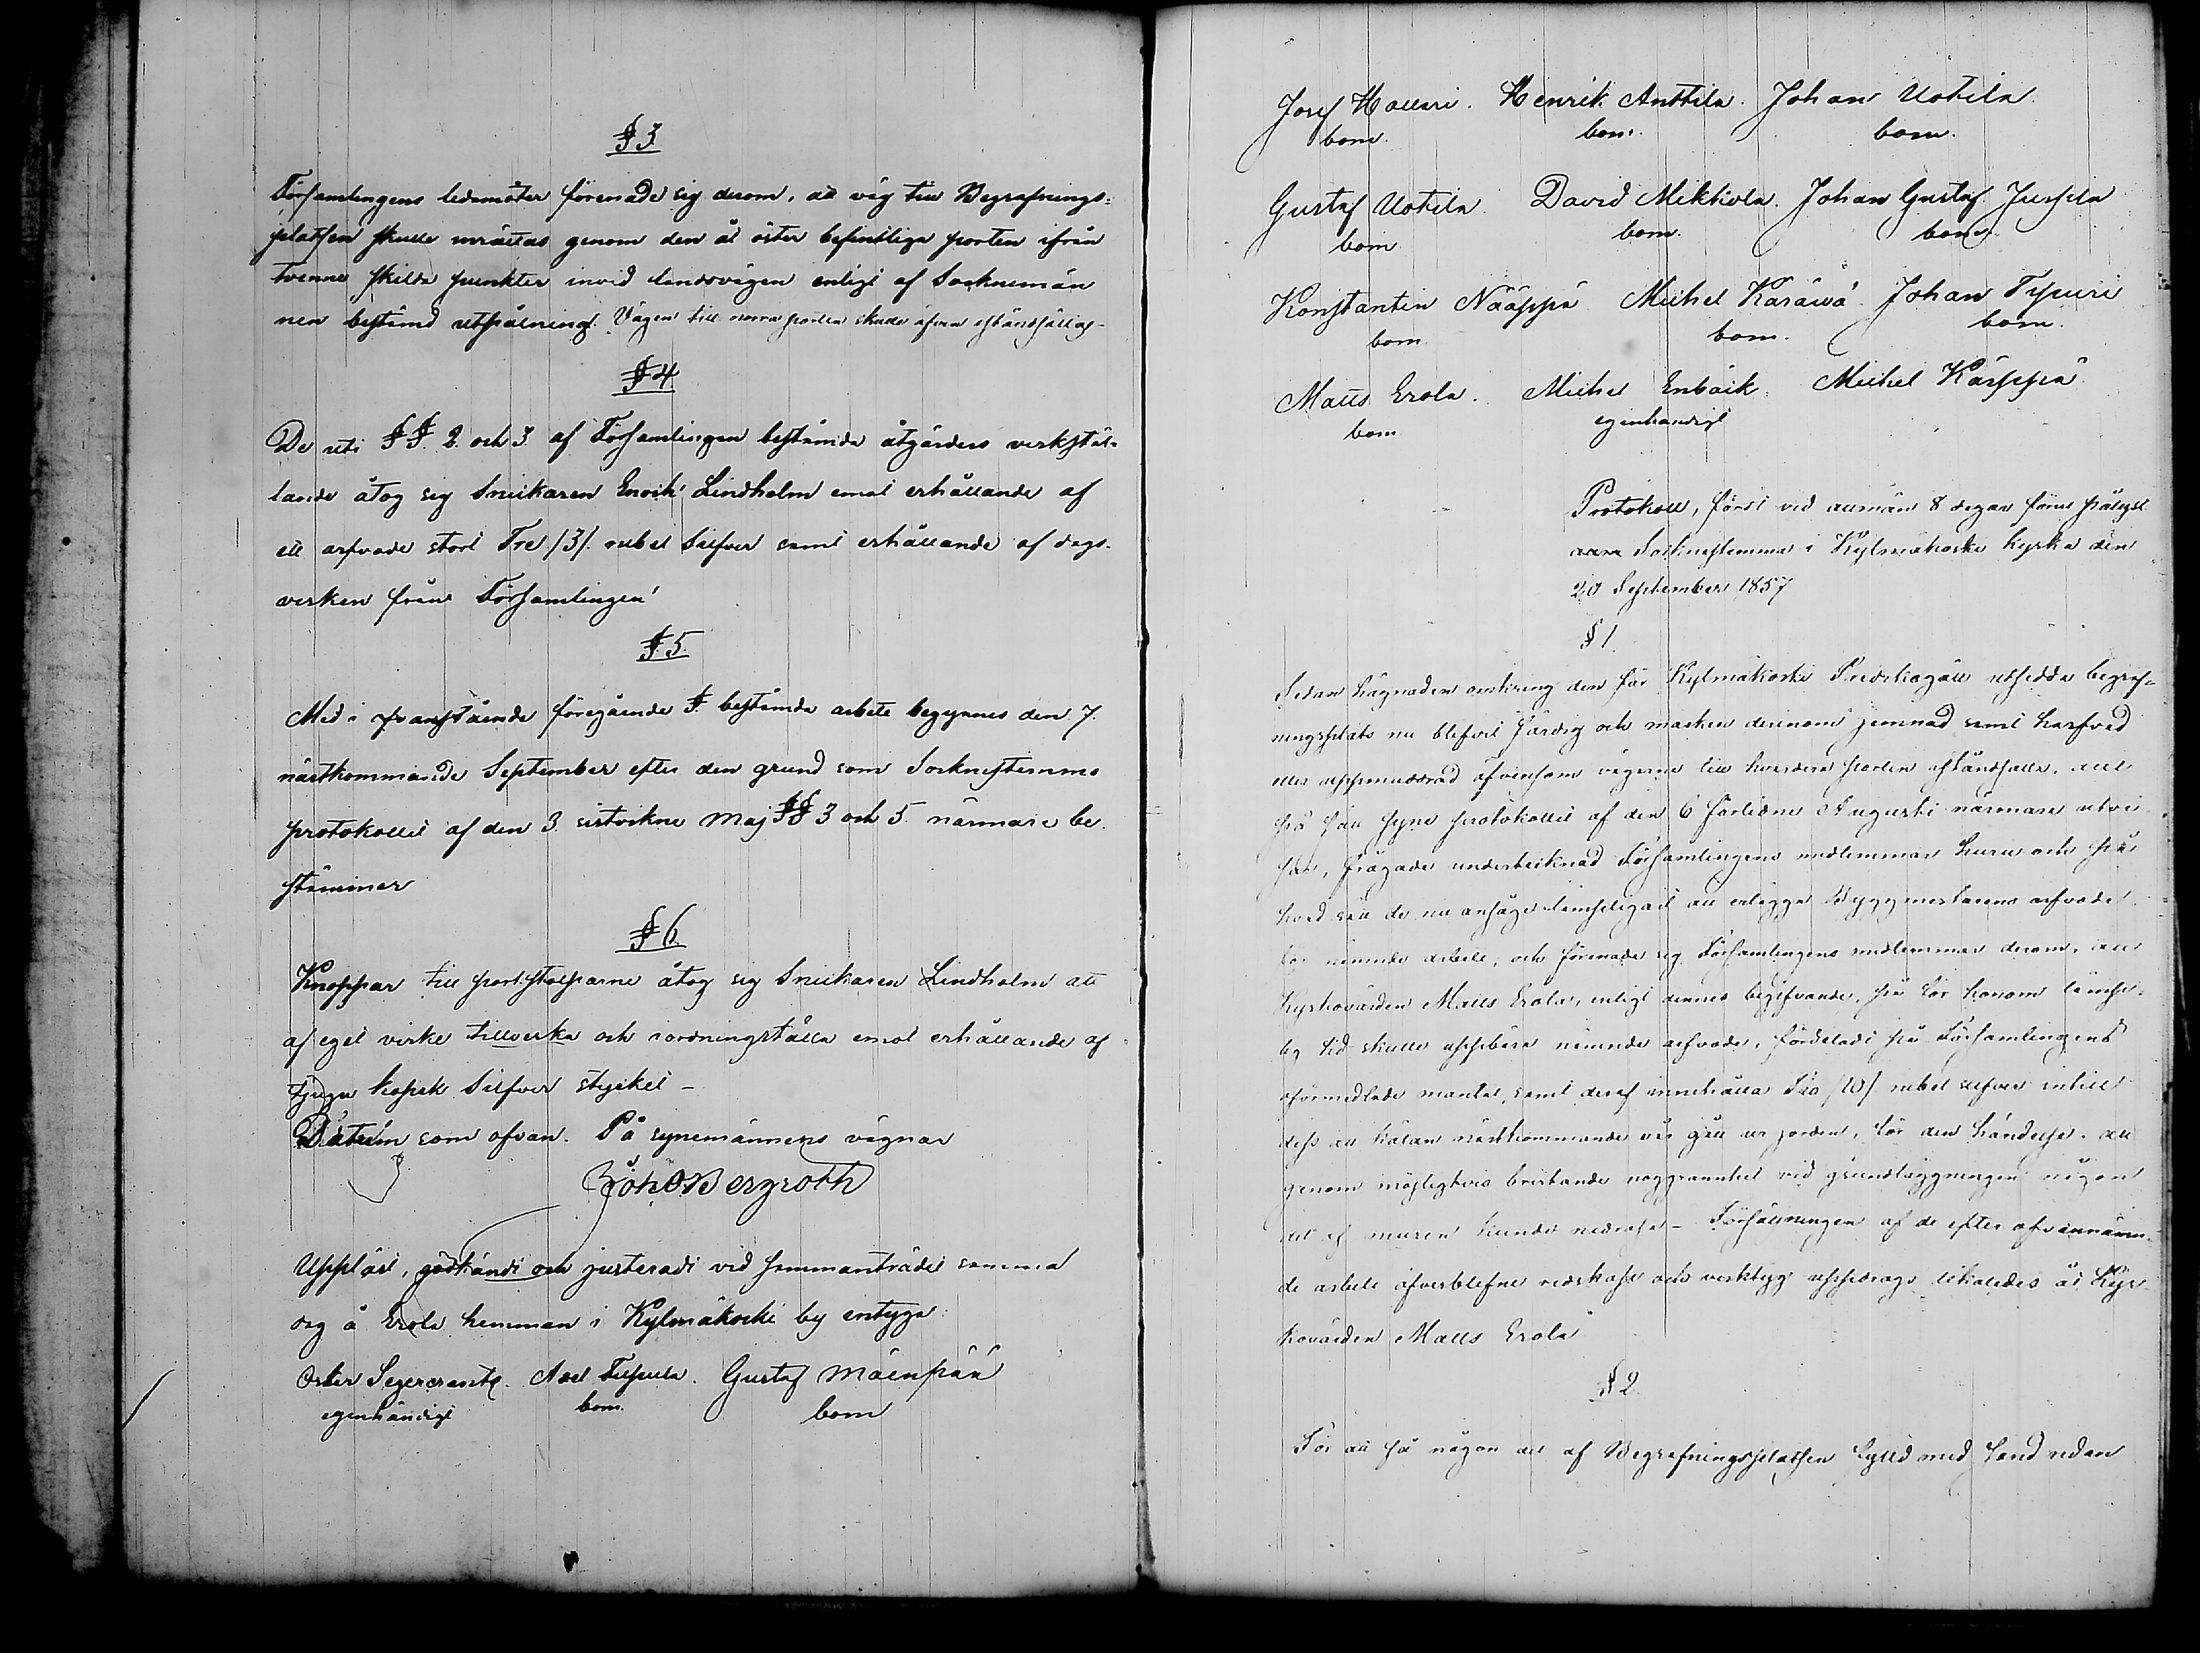 § 3
Församlingens ledamöter förenade sig derom, att väg till Begrafnings-
platsen skulle inrättas genom den åt öster befintliga porten ifrån
tvenne skilda punkter invid landsvägen enligt af Socknemän
nen bestämd utpålning. Vägen till norra porten skulle äfven
§ 4
De uti §§ 2 och 3 af Församlingen bestämda åtgärders verkstäl-
lande åtog sig Snickaren Enock Lindholm emot erhållande af
ett arfvode stort Tre /3/ rubel Silfver samt erhållande af dags-
verken från Församlingen
§ 5
Med i ofvanstående föregående § bestämda arbete begynnes den 7
nästkommande September efter den grund som Sockenstemmo
protokollet af den 3 sistvikne Maj §§ 3 och 5 närmare be-
stämmer
§ 6
Knoppar till portstolparne åtog sig Snickaren Lindholm att
af eget virke tillverka och iordningställa emot erhållande af
tjugu kopek Silfver stycket -
Datum som ofvan. På synemännens vägnar
Joh O Bergroth
Uppläst, godkändt och justeradt vid sammanträde samma
dag å Erola hemman i Kylmäkoski by intyga:
Oskar Segercrantz. Axel Tipula. Gustaf Mäenpää
egenhändigt bom. bom
Josef Hollari. Henrik Anttila. Johan Uotila.
bom. bom. bom.
Gustaf Uotila. David Mikkola. Johan Gustaf Jussila
bom. bom. bom.
Konstantin Nääppä Michel Käräwä Johan Typuri
bom. bom. bom.
Matts Erola. Michel Enbäck. Michel Käppä
bom. egenhändigt
Protokoll, fördt vid allmän 8 dagar förut pålyst
Sockenstemma i Kylmäkoski kyrka den
20 September 1857
§ 1
Sedan hägnaden omkring den för Kylmäkoski Predikogäll utsedda begraf-
ningsplats nu blifvit färdig och marken derinom jemnad samt harfvad
eller uppmuddrad äfvensom vägarne till hvardera porten iståndsatte, allt
på sätt syne protokollet af den 6 förlidne Augusti närmare utvi-
sar, frågade undertecknad Församlingens medlemmar huru och på
hvad sätt de nu ansågo lämpligast att erlägga Byggmästarens arfvode
för nämnde arbete, och förenade sig Församlingens medlemmar derom, att
Kyrkovärden Matts Erola, enligt dennes begifvande, på för honom lämp-
lig tid skulle uppbära nämnde arfvode, fördeladt på Församlingens
oförmedlade mantal, samt deraf innehålla Tio /10/ rubel silfver intill
dess att kälan nästkommande vår gått ur jorden, för den händelse att
genom möjligtvis bristande noggrannhet vid grundläggningen någon
del af muren kunde nedrasa - Försäljningen af de efter ofvannämn-
de arbete öfverblefne redskap och verktyg uppdrogs likaledes åt Kyr-
kovärden Matts Erola
§ 2
För att få någon del af Begrafningsplatsen fylld med sand redan